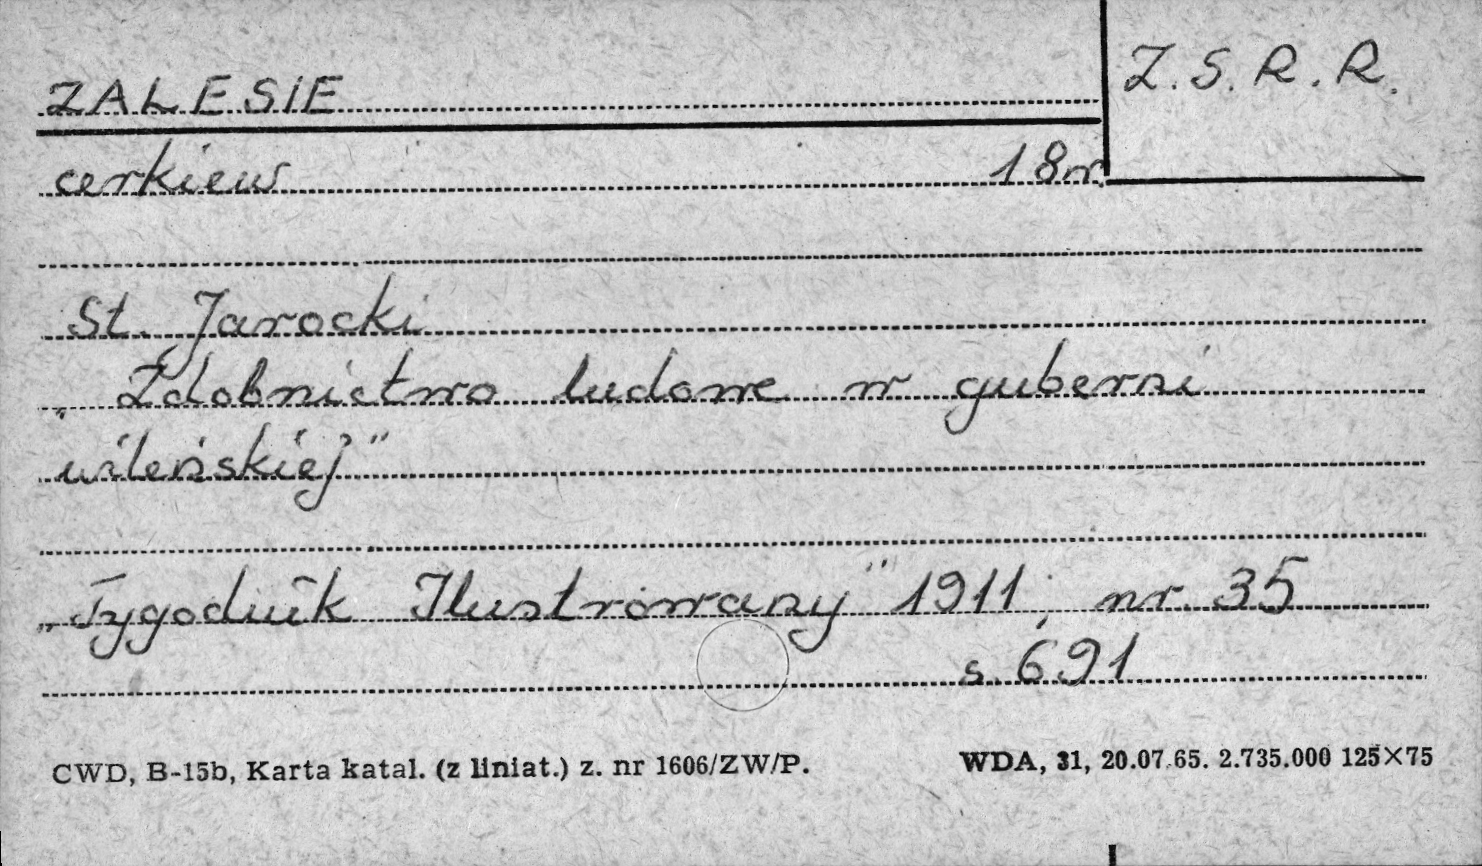 ZALESIE
Z.S.R.R.
cerkiew 18w
St. Jarocki
„Zdobnictwo ludowe w guberni
wileńskiej"
„Tygodnik Ilustrowany" 1911 nr. 35
s. 691
CWD, B-15b, Karta katal. (z liniat.) z. nr 1606/ZW/P.
WDA, 31, 20.07.65. 2.735.000 125×75